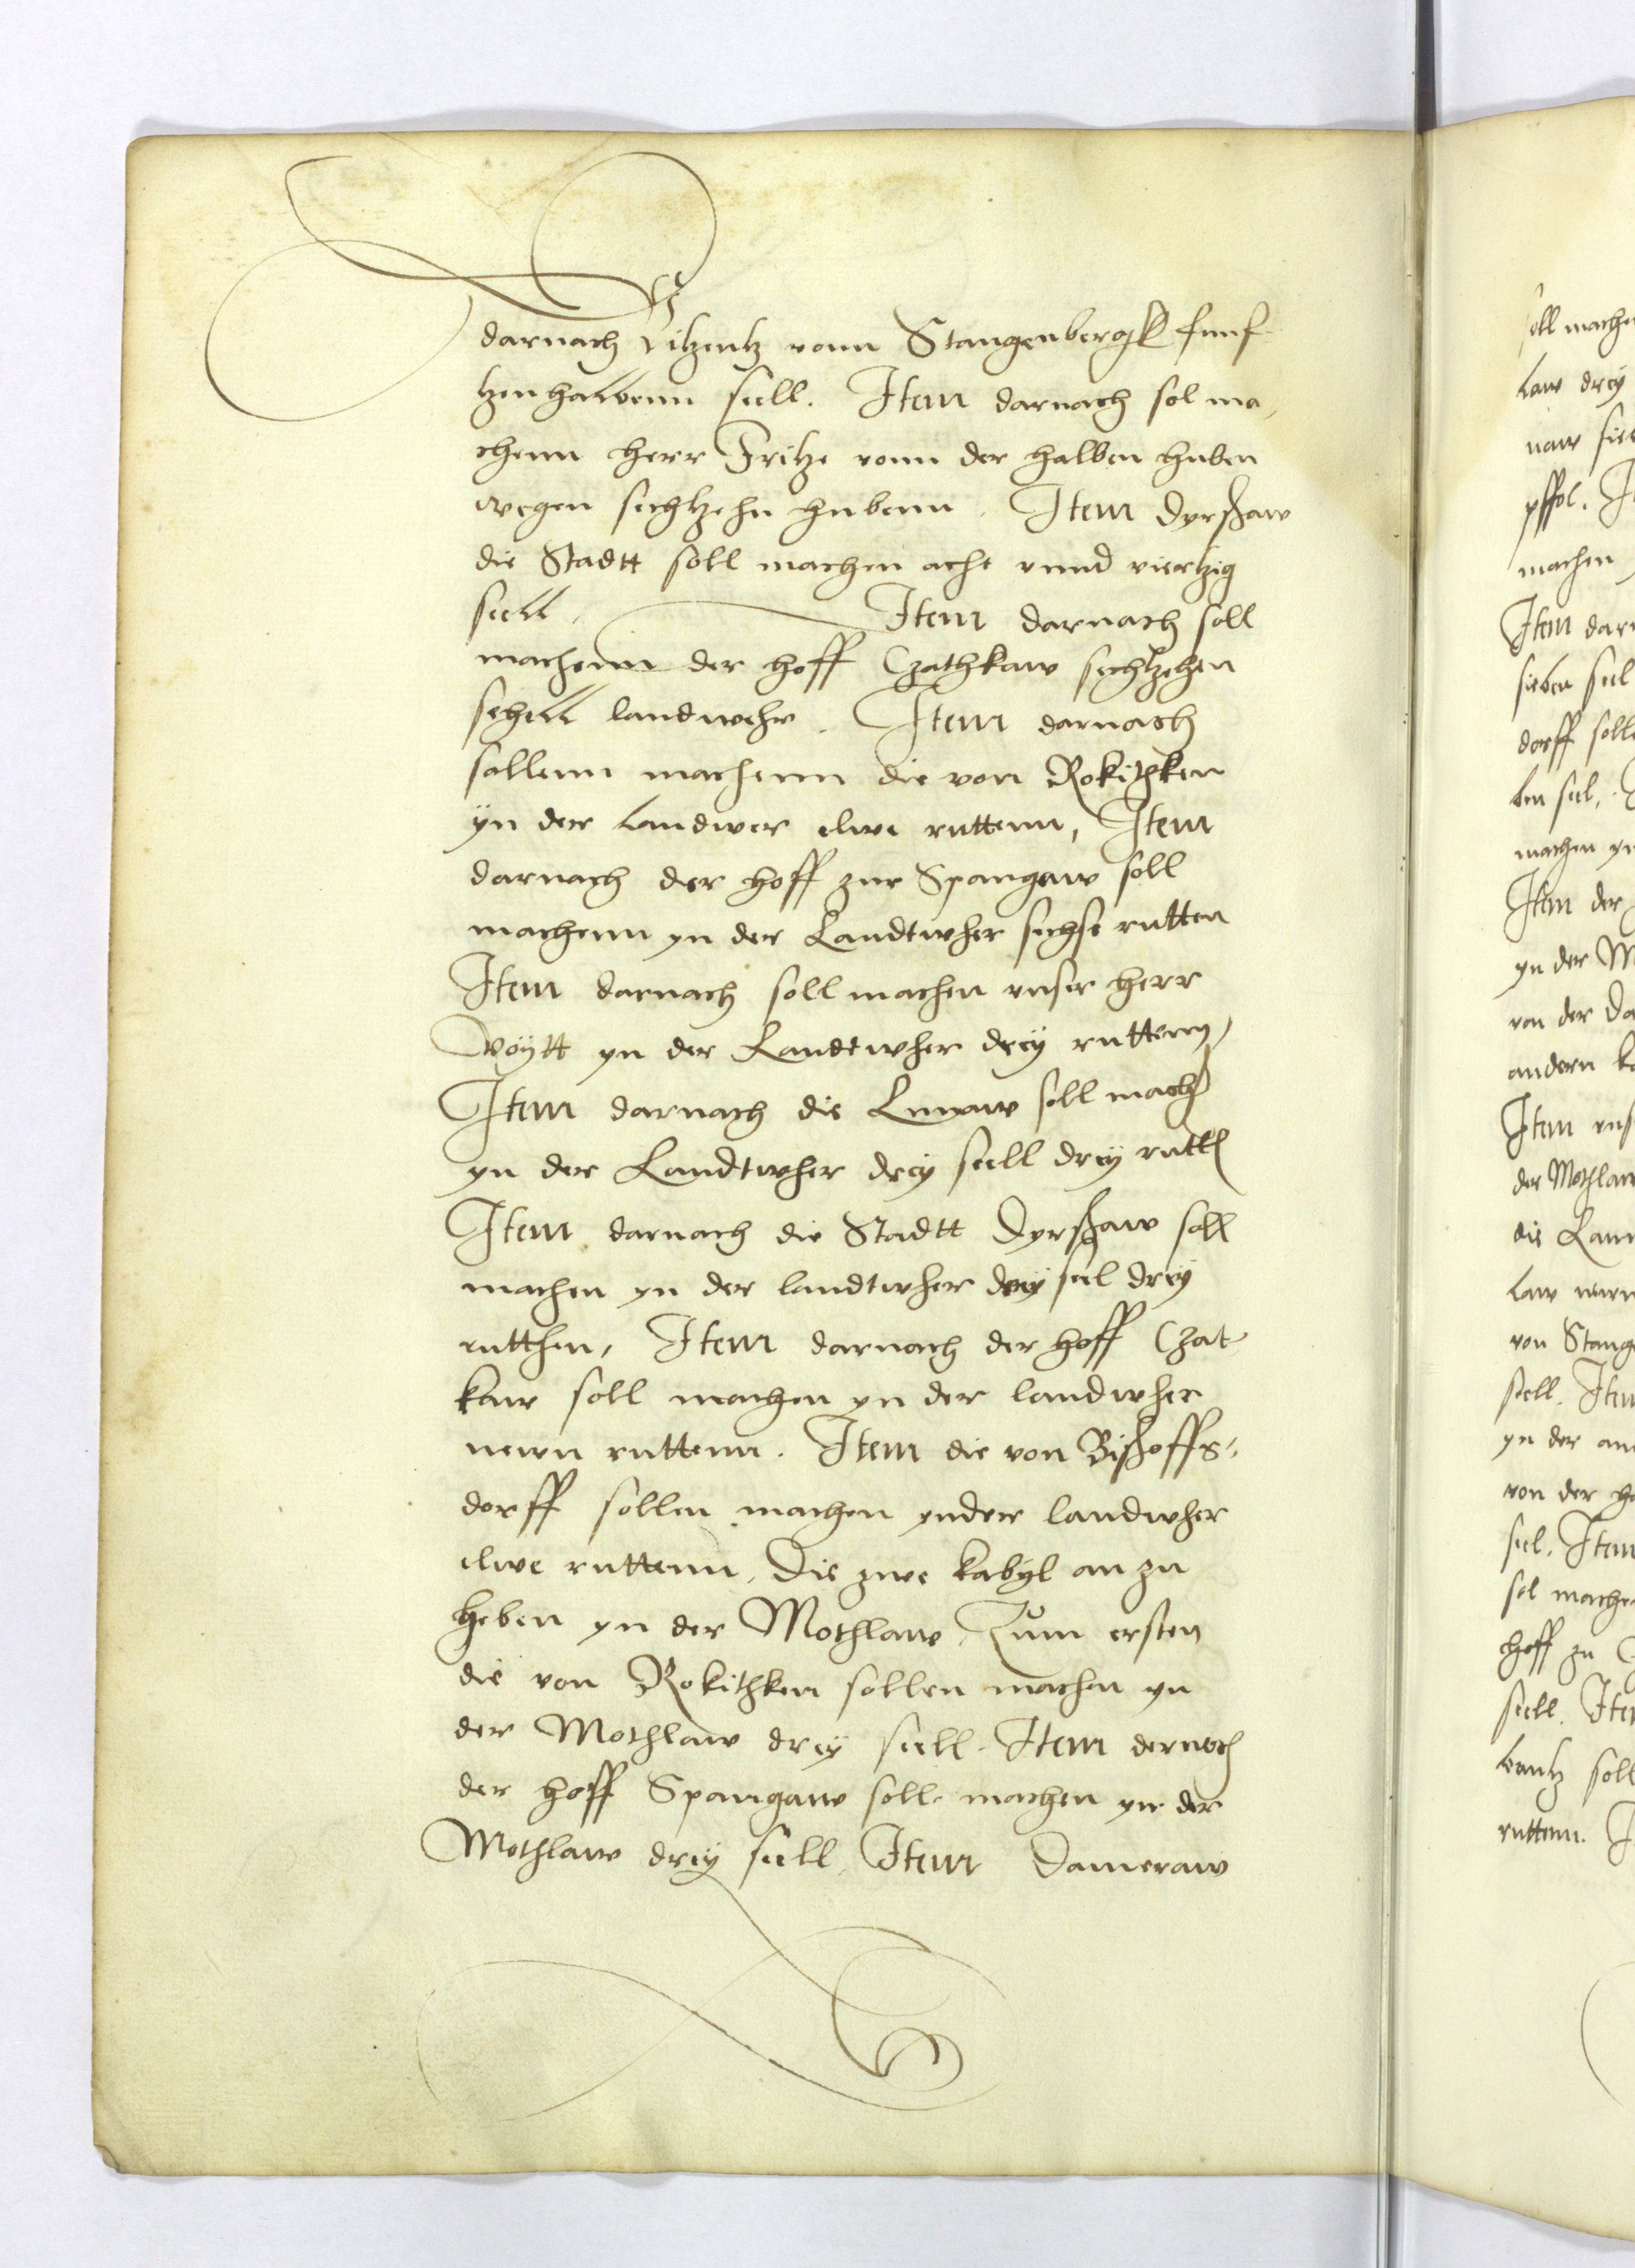 darnach vitzentz vonn Stangenbergk funf-
tzenhalbenn siell. Item darnach sol ma-
chenn herr Fritze vonn der halben huben
wegen sechtzehn hubenn. Item Dyrschaw
die Stadtt soll machen acht vnnd viertzig
siell. Item darnach soll
machenn der hoff Czathkaw sechtzehen
sehell landwehr. Item darnach
sollenn machenn die von Rokithken
ÿn der Landwer elwe ruttenn, Item
darnach der hoff zur Spangaw soll
machenn yn der Landtwher sechse rutten
Item darnach soll machen vnser herr
Voÿtt yn der Landtwher dreÿ ruttenn,
Item darnach die soll mach
yn der Landtwher dreÿ siell dreÿ rutt
Item darnach die Stadtt Dyrschaw soll
machen yn der landtwher dreÿ siel dreÿ
rutthen, Item darnach der hoff Czat-
kaw soll machen yn der landwher
newn ruttenn. Item die von Bischoffs-
dorff sollen machen ynder landwher
elwe ruttenn, Die zwe kabyl an zu
heben yn der Mothlaw, Zum ersten
die von Rokithken sollen machen yn
der Mothlaw dreÿ siell. Item dernoch
der hoff Spangaw soll machen yn der
Mothlaw dreÿ siell, Item Dameraw
soll mache
law dreÿ
naw siel
machen
Item dar
sieben siel
dorff solle
ben siel,
machen yn
Item der
yn der M
von der Da
andern ka
Item vns
der Mothlaw
die Lann
law
von Stang
siell. Item
yn der an
von der h
siel. Item
sol mache
hoff zu
siell. Ite
soll
ruttenn. I